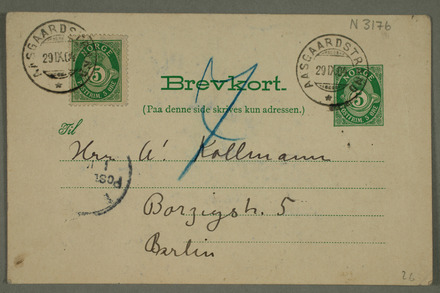 N 3176
AASGAARDSTRAND
29 IX 04
NORGE
5
POSTFRIM 5 ØRE
AASGAARDSTRAND
29 IX 04
NORGE
5
POSTFRIM 5 ØRE
Brevkort.
(Paa denne side skrives kun adressen.)
Til
Herr A. Kollmann
Post
Borzigstr. 5
Berlin
26